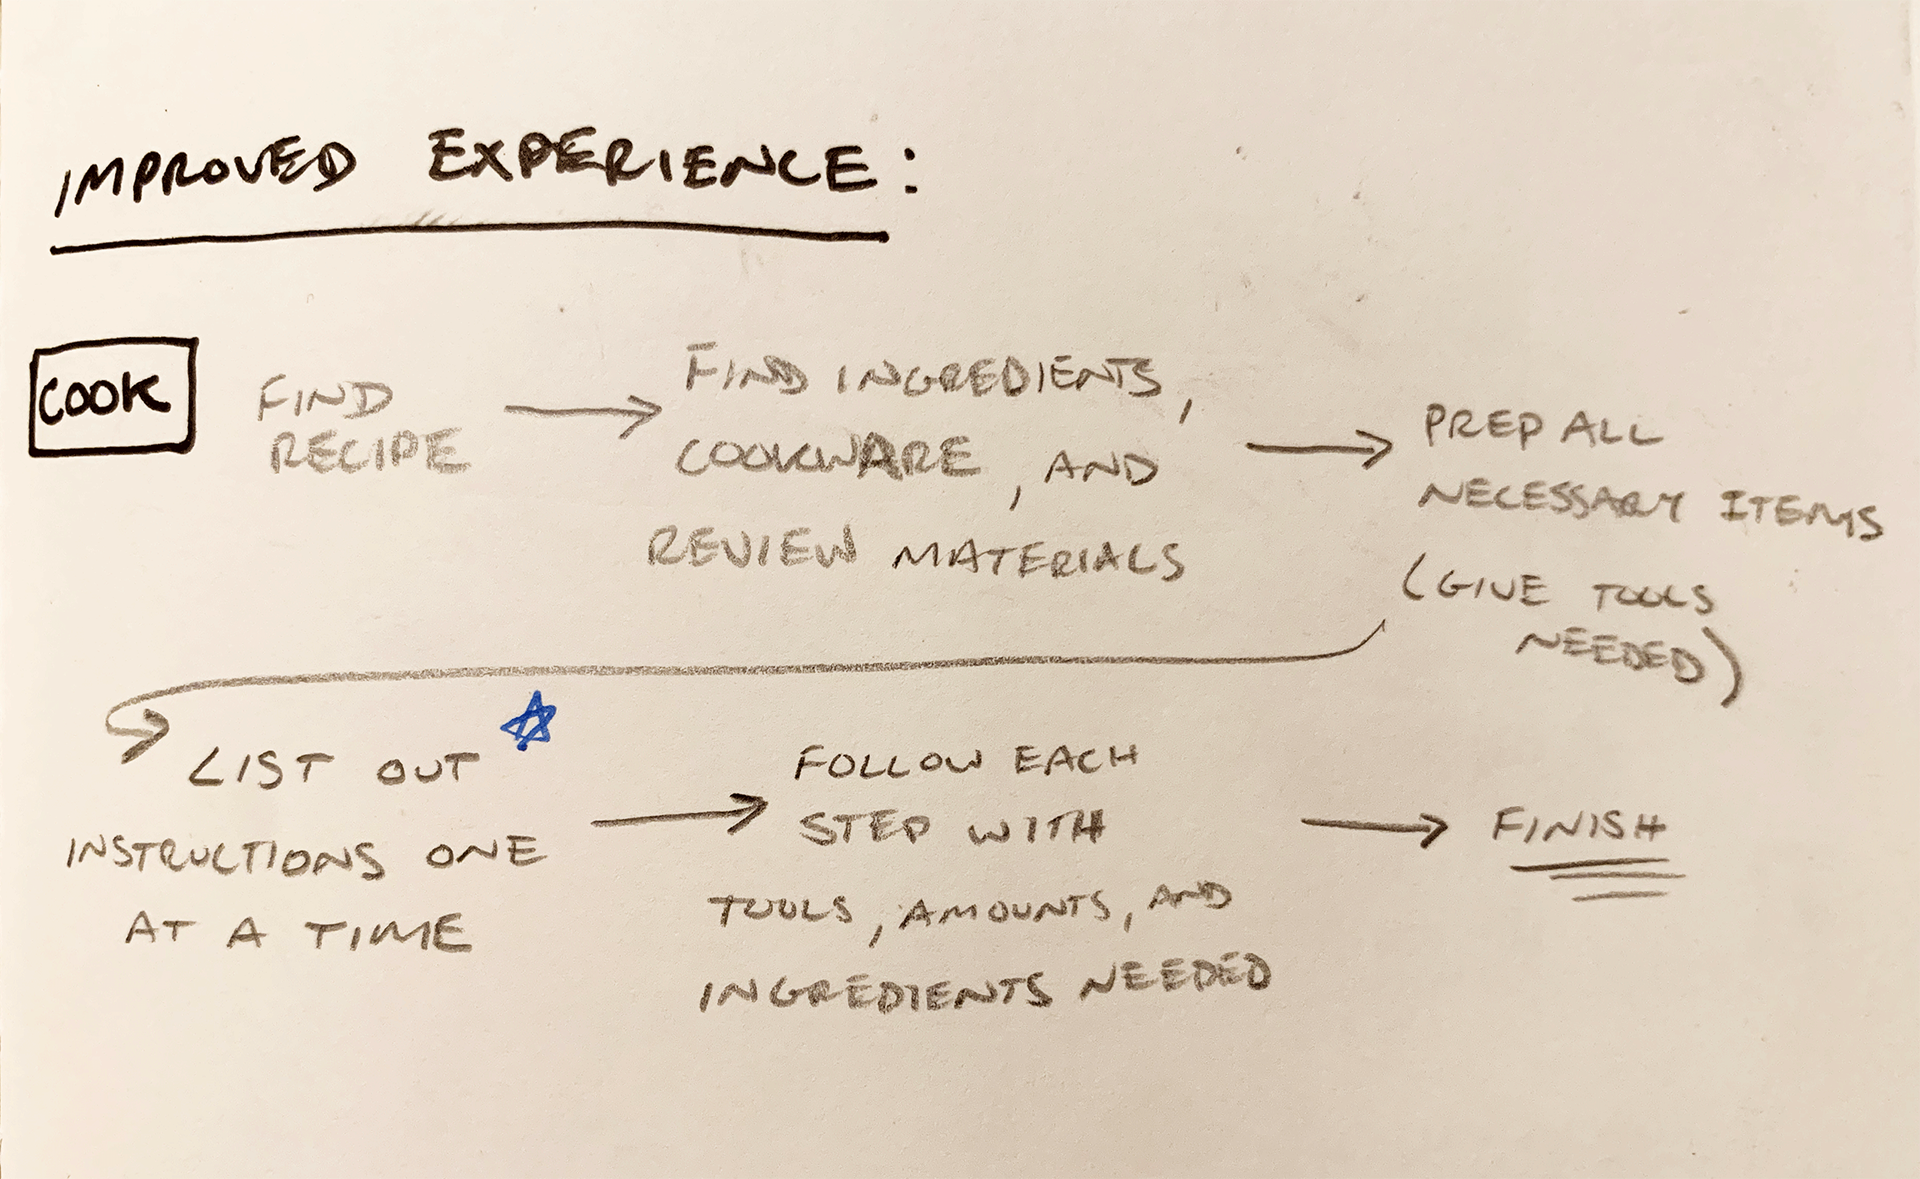 IMPROVED EXPERIENCE:
COOK
FIND
RECIPE
FIND INGREDIENTS,
COOKWARE, AND
REVIEW MATERIALS
PREP ALL
NECESSARY ITEMS
(GIVE TOOLS
NEEDED)
LIST OUT
INSTRUCTIONS ONE
AT A TIME
FOLLOW EACH
STEP WITH
TOOLS, AMOUNTS, AND
INGREDIENTS NEEDED
FINISH